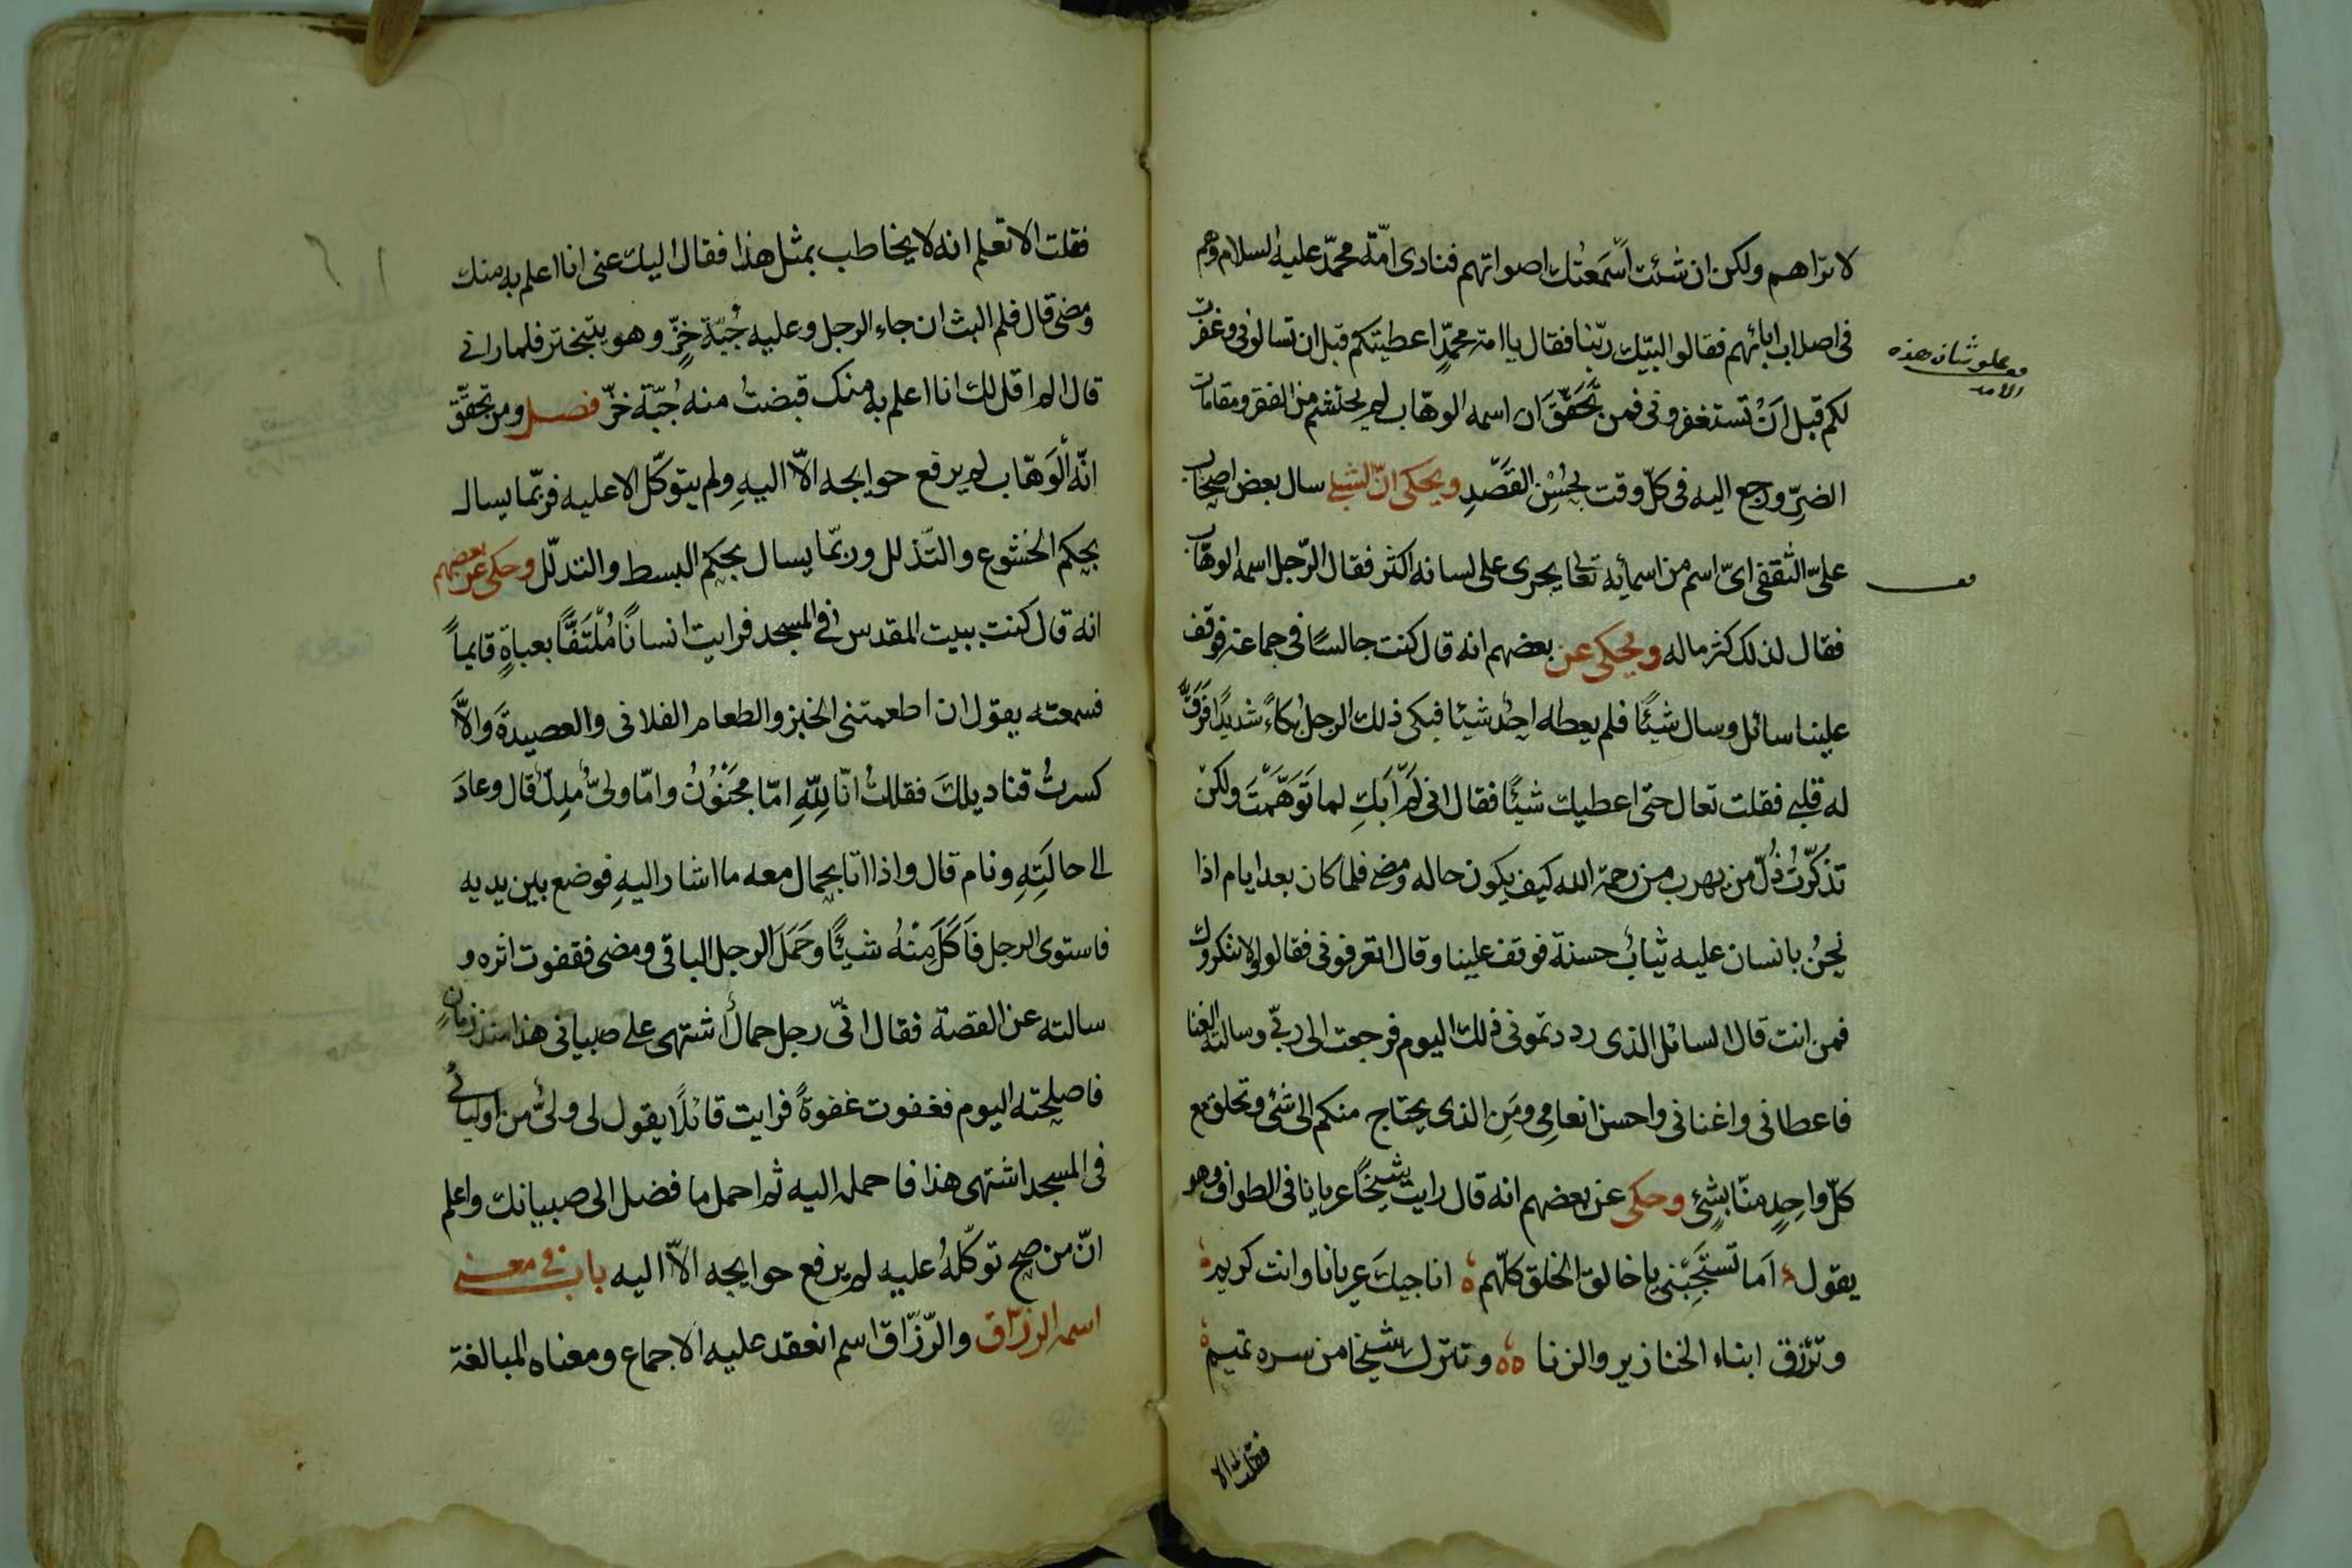 لا تراهم ولكن ان شئت اسمعتك اصواتهم فنادى امّة محمّد عليه السلام وهم
فى اصلاب ابائهم فقالوا لبّيك ربّنا فقال يا امة محمّدٍ اعطيتكم قبل ان تسالونى وغفرت
لكم قبل انْ تستغفرونى فمن تَحَقَّقَ ان اسمه الوهّاب لم يحتشم من الفقر ومقامات
الضرّ ورجع اليه فى كلّ وقت بحُسْنِ القَصْدِ ويحكى انّ الشبلى سال بعض اصحاب
علىّ الثقفى اىّ اسم من اسمائه تعالى يجرى على لسانه اكثر فقال الرّجل اسمه الوهّاب
فقال لذلك كثر ماله ويحكى عن بعضهم انه قال كنت جالسًا فى جماعة فوقف
علينا سائل وسال شيئًا فلم يعطه احدٌ شيئا فبكى ذلك الرجل بُكاءً شديدًا فَرَقَّ
له قلبى فقلت تعال حتى اعطيك شيئًا فقال انى لَمْ اَبكِ لما تَوَهَّمْتَ ولكن
تذكّرتُ ذُلّ من يهرب من رحمة الله كيف يكون حاله ومضى فلما كان بعد ايام اذا
نحنُ بانسان عليه ثيابٌ حسنة فوقف علينا وقال اتعرفونى فقالوا لا ننكروك
فمن انت قال السائل الذى رددتمونى ذلك اليوم فرجعت الى ربّى وسالته الغنا
فاعطانى واغنانى واحسن انعامى ومَنِ الذى يحتاج منكم الى شئ وتحلق مع
كلّ واحِدٍ منّا بشئٍ وحكى عن بعضهم انه قال رايت شيخًا عريانا فى الطواف وهو
يقول اَما تَسْتَحِيْنى يا خالق الخلق كلّهم اناجيك عريانا وانت كريم
وترزق ابناء الخنازير والزنا وتترك شيخا من سره تميم
فقلت الا
وعلو شان هذه
الامة
فقلت الا تعلم انه لا يخاطب بمثل هذا فقال اليك عنى انا اعلم به منك
ومضى قال فلم البث ان جاء الرجل وعليه جُبّة خزّ وهو يتبختر فلما رانى
قال الم اقل لك انا اعلم به منك قبضتُ منه جُبّة خزّ فصل ومن تحقّق
انّه الْوَهّاب لم يرفع حوايجه الّا اليهِ ولم يتوكّل الا عليه فربّما يسال
بحكم الخشوع والتّذلل وربّما يسال بحكم البسط والتدلّل وحكى عن بعضهم
انه قال كنت ببيت المقدس فى المسجد فرايت انسانًا مُلْتَفًّا بعباةٍ قايماً
فسمعته يقول ان اطعمتنى الخبز والطعام الفلانى والعصيدةَ وَالّا
كسرتُ قناديلك فقلتُ انّا لِلّهِ امّا مجنونٌ وامّا ولىٌّ مُدِلٌّ قال وعادَ
الى حالَتِهِ ونام قال واذا انا بحمال معه ما اشار اليهِ فوضع بين يديه
فاستوى الرجل فَاَكَلَ مِنْهُ شيئًا وحَمَلَ الرجل الباقى ومضى فقفوت اثره و
سالته عن القصة فقال انّى رجل حمالٌ اشتهى على صبيانى هذا منذ زمانٍ
فاصلحته اليوم فغفوت غفوةً فرايت قائلًا يقول لى ولىٌّ من اوليائى
فى المسجد اشتهى هذا فاحمله اليه ثم احمل ما فضل الى صبيانك واعلم
انّ من صح توكّلهُ عليه لم يرفع حوايجه الاّ اليه باب فى معنى
اسمه الرزّاق والرّزّاق اسم انعقد عليه الاجماع ومعناه المبالغة